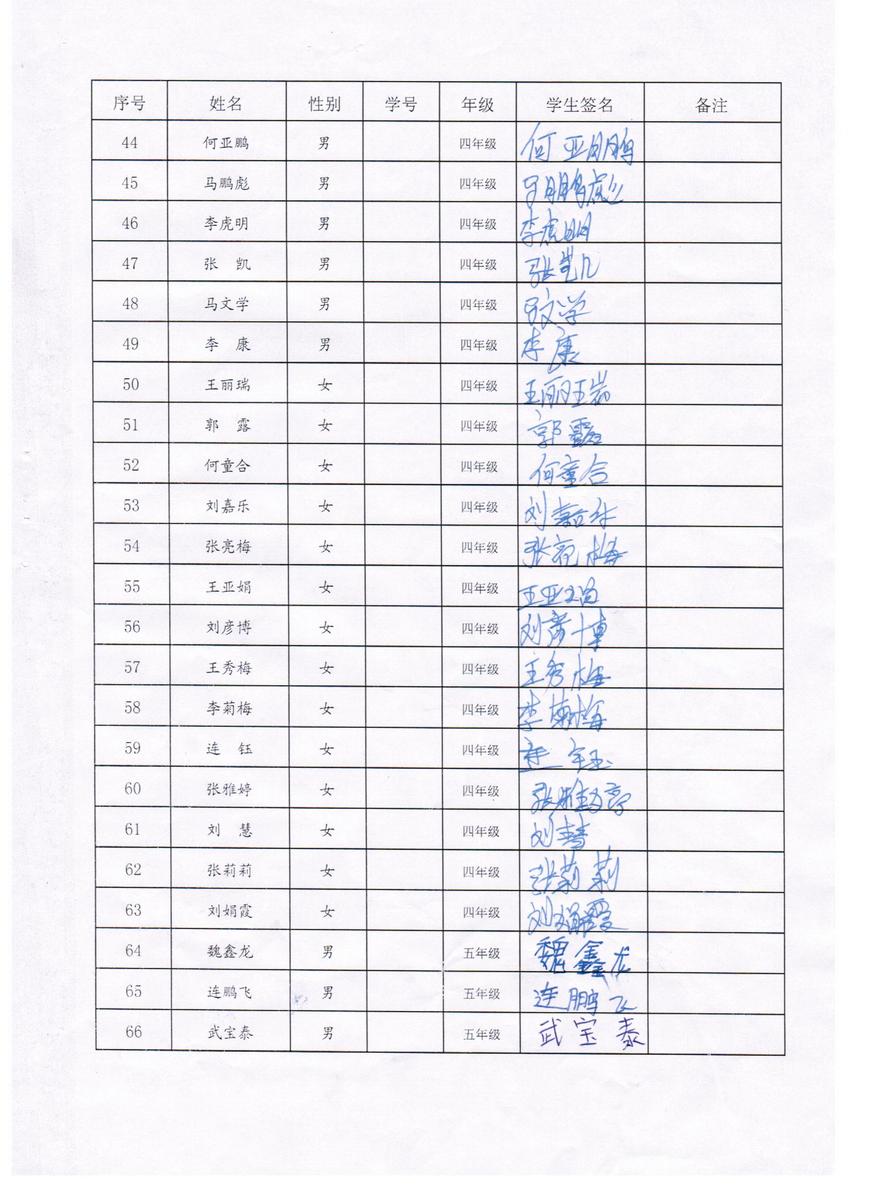 序号 姓名 性别 学号 年级 学生签名 备注
44 何亚鹏 男 四年级 何亚鹏
45 马鹏彪 男 四年级 马鹏彪
46 李虎明 男 四年级 李虎明
47 张 凯 男 四年级 张凯
48 马文学 男 四年级 马文学
49 李 康 男 四年级 李康
50 王丽瑞 女 四年级 王丽瑞
51 郭 露 女 四年级 郭露
52 何童合 女 四年级 何童合
53 刘嘉乐 女 四年级 刘嘉乐
54 张亮梅 女 四年级 张亮梅
55 王亚娟 女 四年级 王亚娟
56 刘彦博 女 四年级 刘彦博
57 王秀梅 女 四年级 王秀梅
58 李菊梅 女 四年级 李菊梅
59 连 钰 女 四年级 连钰
60 张雅婷 女 四年级 张雅婷
61 刘 慧 女 四年级 刘慧
62 张莉莉 女 四年级 张莉莉
63 刘娟霞 女 四年级 刘娟霞
64 魏鑫龙 男 五年级 魏鑫龙
65 连鹏飞 男 五年级 连鹏飞
66 武宝泰 男 五年级 武宝泰